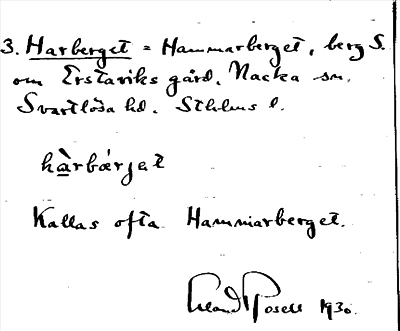 3. Harberget = Hammarberget, berg S.
om Erstaviks gård, Nacka sn,
Svartlösa hd. Sthlms l.
hàrbárjet
Kallas ofta Hammarberget.
Rosell 1930.